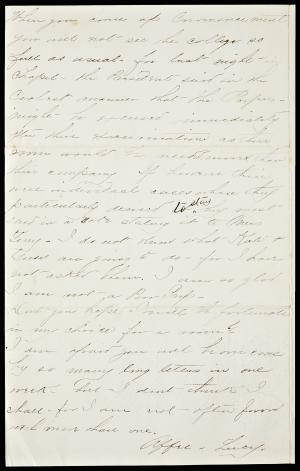 When you come up Commencement
you will not see the college so
full as usual - for last night - in
Chapel - the President said in the
coolest manner that the Preps -
might be excused immediately
after their examinations as their
room would be needed more than
their company. If however there
were individual cases where they
particularly desired to stay they must
send in a note stating it to Miss
Terry - I do not know what Kate &
are going to do - for I have
not asked them. I am so glad
I am not a Prep -
Don't you hope I will be fortunate
in my choice for a room?
I am afraid you will be overcome
by so many long letters in one
week - but - I don't think I
shall - for I am not - often favored
with more than one.
Affec - Lucy.